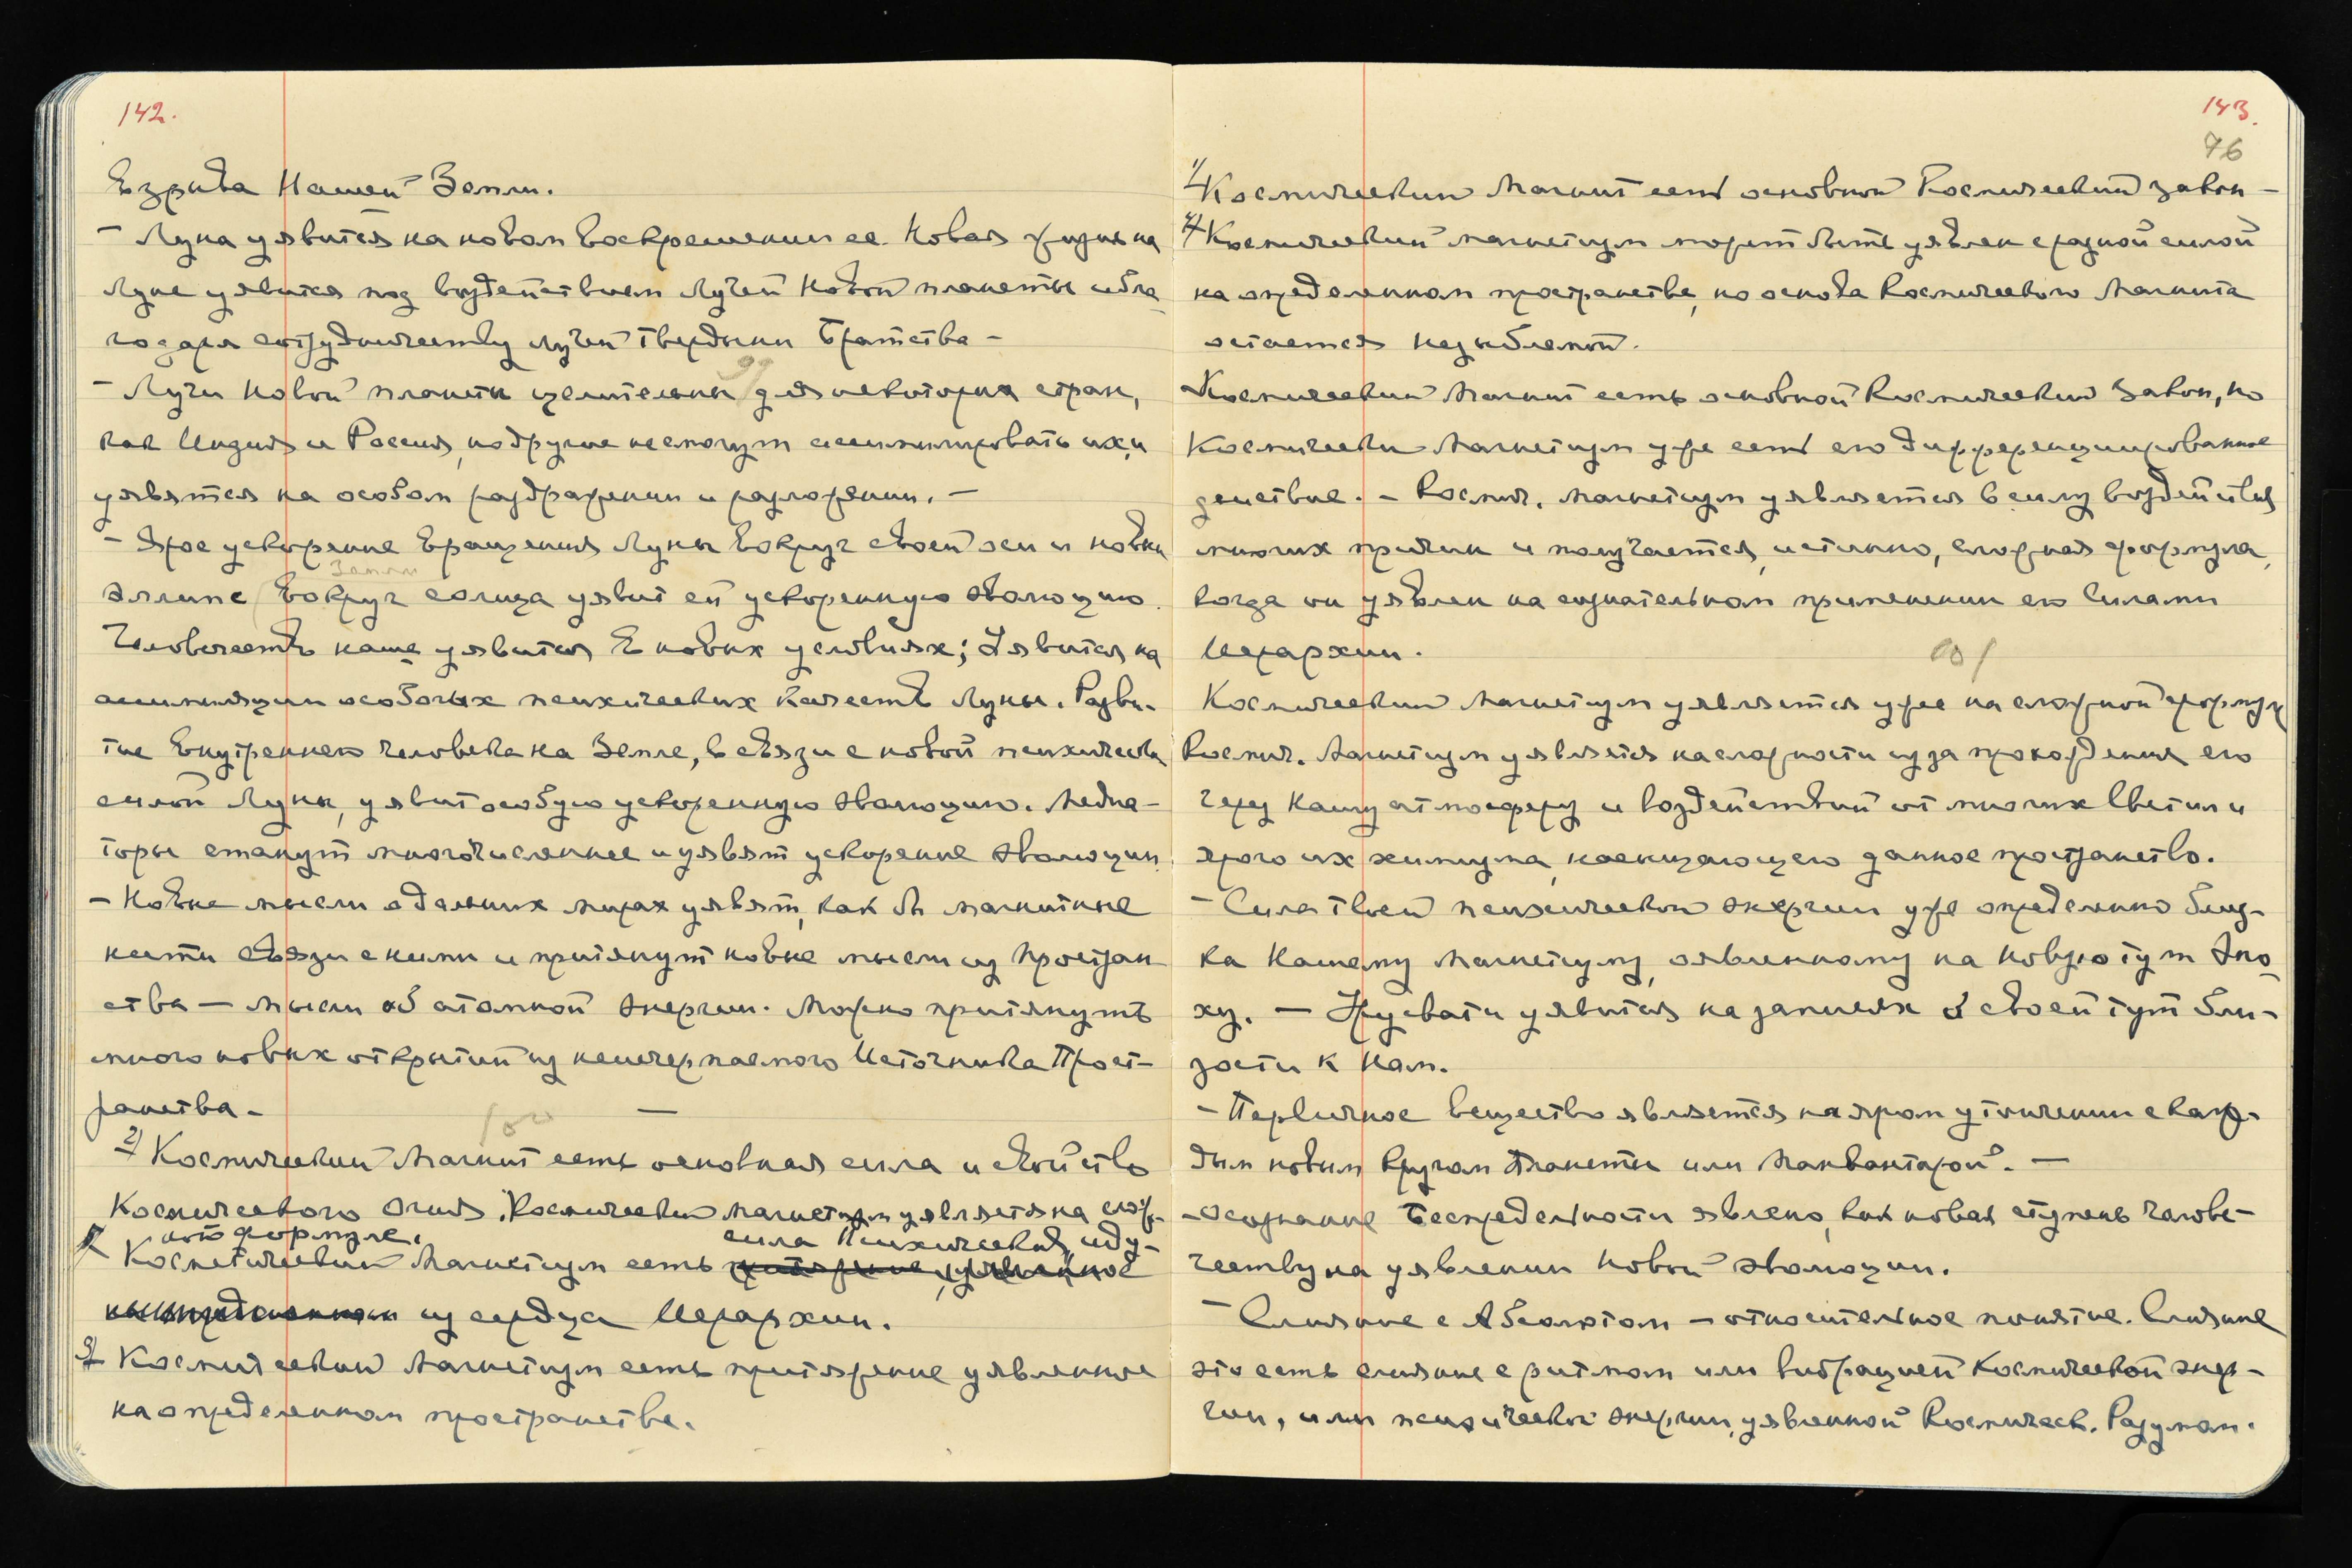 142.
взрыва Нашей Земли.
– Луна уявится на новом Воскрешении ее. Новая жизнь на
Луне уявится под воздействием Лучей Новой планеты и бла-
годаря сотрудничеству лучей Твердыни Братства –
99
– Лучи Новой планеты целительны для некоторых стран,
как Индия и Россия, но другие не смогут ассимилировать их, и
уявятся на особом раздражении и разложении. –
– Ярое ускорение вращения Луны вокруг своей оси и новый
Земли
эллипс вокруг солнца уявит ей ускоренную эволюцию.
Человечество наше уявится в новых условиях; Уявится на
ассимиляции особых психических качеств Луны. Разви-
тие внутреннего человека на Земле, в связи с новой психической
силой Луны, уявит особую ускоренную эволюцию. Медиа-
торы станут многочисленнее и уявят ускорение эволюции.
– Новые мысли о дальних мирах уявят, как бы магнитные
нити связи с ними и притянут новые мысли из Простран
ства – мысли об атомной энергии. Можно притянуть
много новых открытий из неисчерпаемого Источника Прост-
ранства –
100 –
2) Космический Магнит есть основная сила и свойство
Космического Огня. Космический магнетизм уявляется на слож-
ной формуле.
сила Психическая, иду-
Космический Магнетизм есть притяжение, уявленное
на определенном из сердца Иерархии.
3) Космический Магнетизм есть притяжение уявленное
на определенном пространстве.
143.
76
1) Космический Магнит есть основной Космический закон –
4) Космический магнетизм может быть уявлен с разной силой
на определенном пространстве, но основа Космического Магнита
остается незыблемой.
Космический Магнит есть основной Космический Закон, но
Космический Магнетизм уже есть его дифференцированное
действие. – Космич. магнетизм уявляется в силу воздействия
многих причин и получается, истинно, сложная формула,
когда он уявлен на сознательном применении его Силами
Иерархии.
101
Космический Магнетизм уявляется уже на сложной формуле
Космич. Магнетизм уявляется на сложности из за прохождения его
через нашу атмосферу и воздействий от многих Светил и
ярого их химизма, насыщающего данное пространство.
– Сила твоей психической энергии уже определенно близ-
ка Нашему Магнетизму, оявленному на Новую тут Эпо-
ху. – Урусвати уявится на записях о своей тут бли-
зости к Нам.
– Первичное вещество является на яром утончении с каж-
дым новым Кругом Планеты или Манвантарой. –
– осознание Беспредельности явлено, как новая ступень челове-
честву на уявлении Новой эволюции.
– Слияние с Абсолютом – относительное понятие. Слияние
это есть слияние с ритмом или вибрацией Космической энер-
гии, или психической энергии, уявленной Космическ. Разумом.